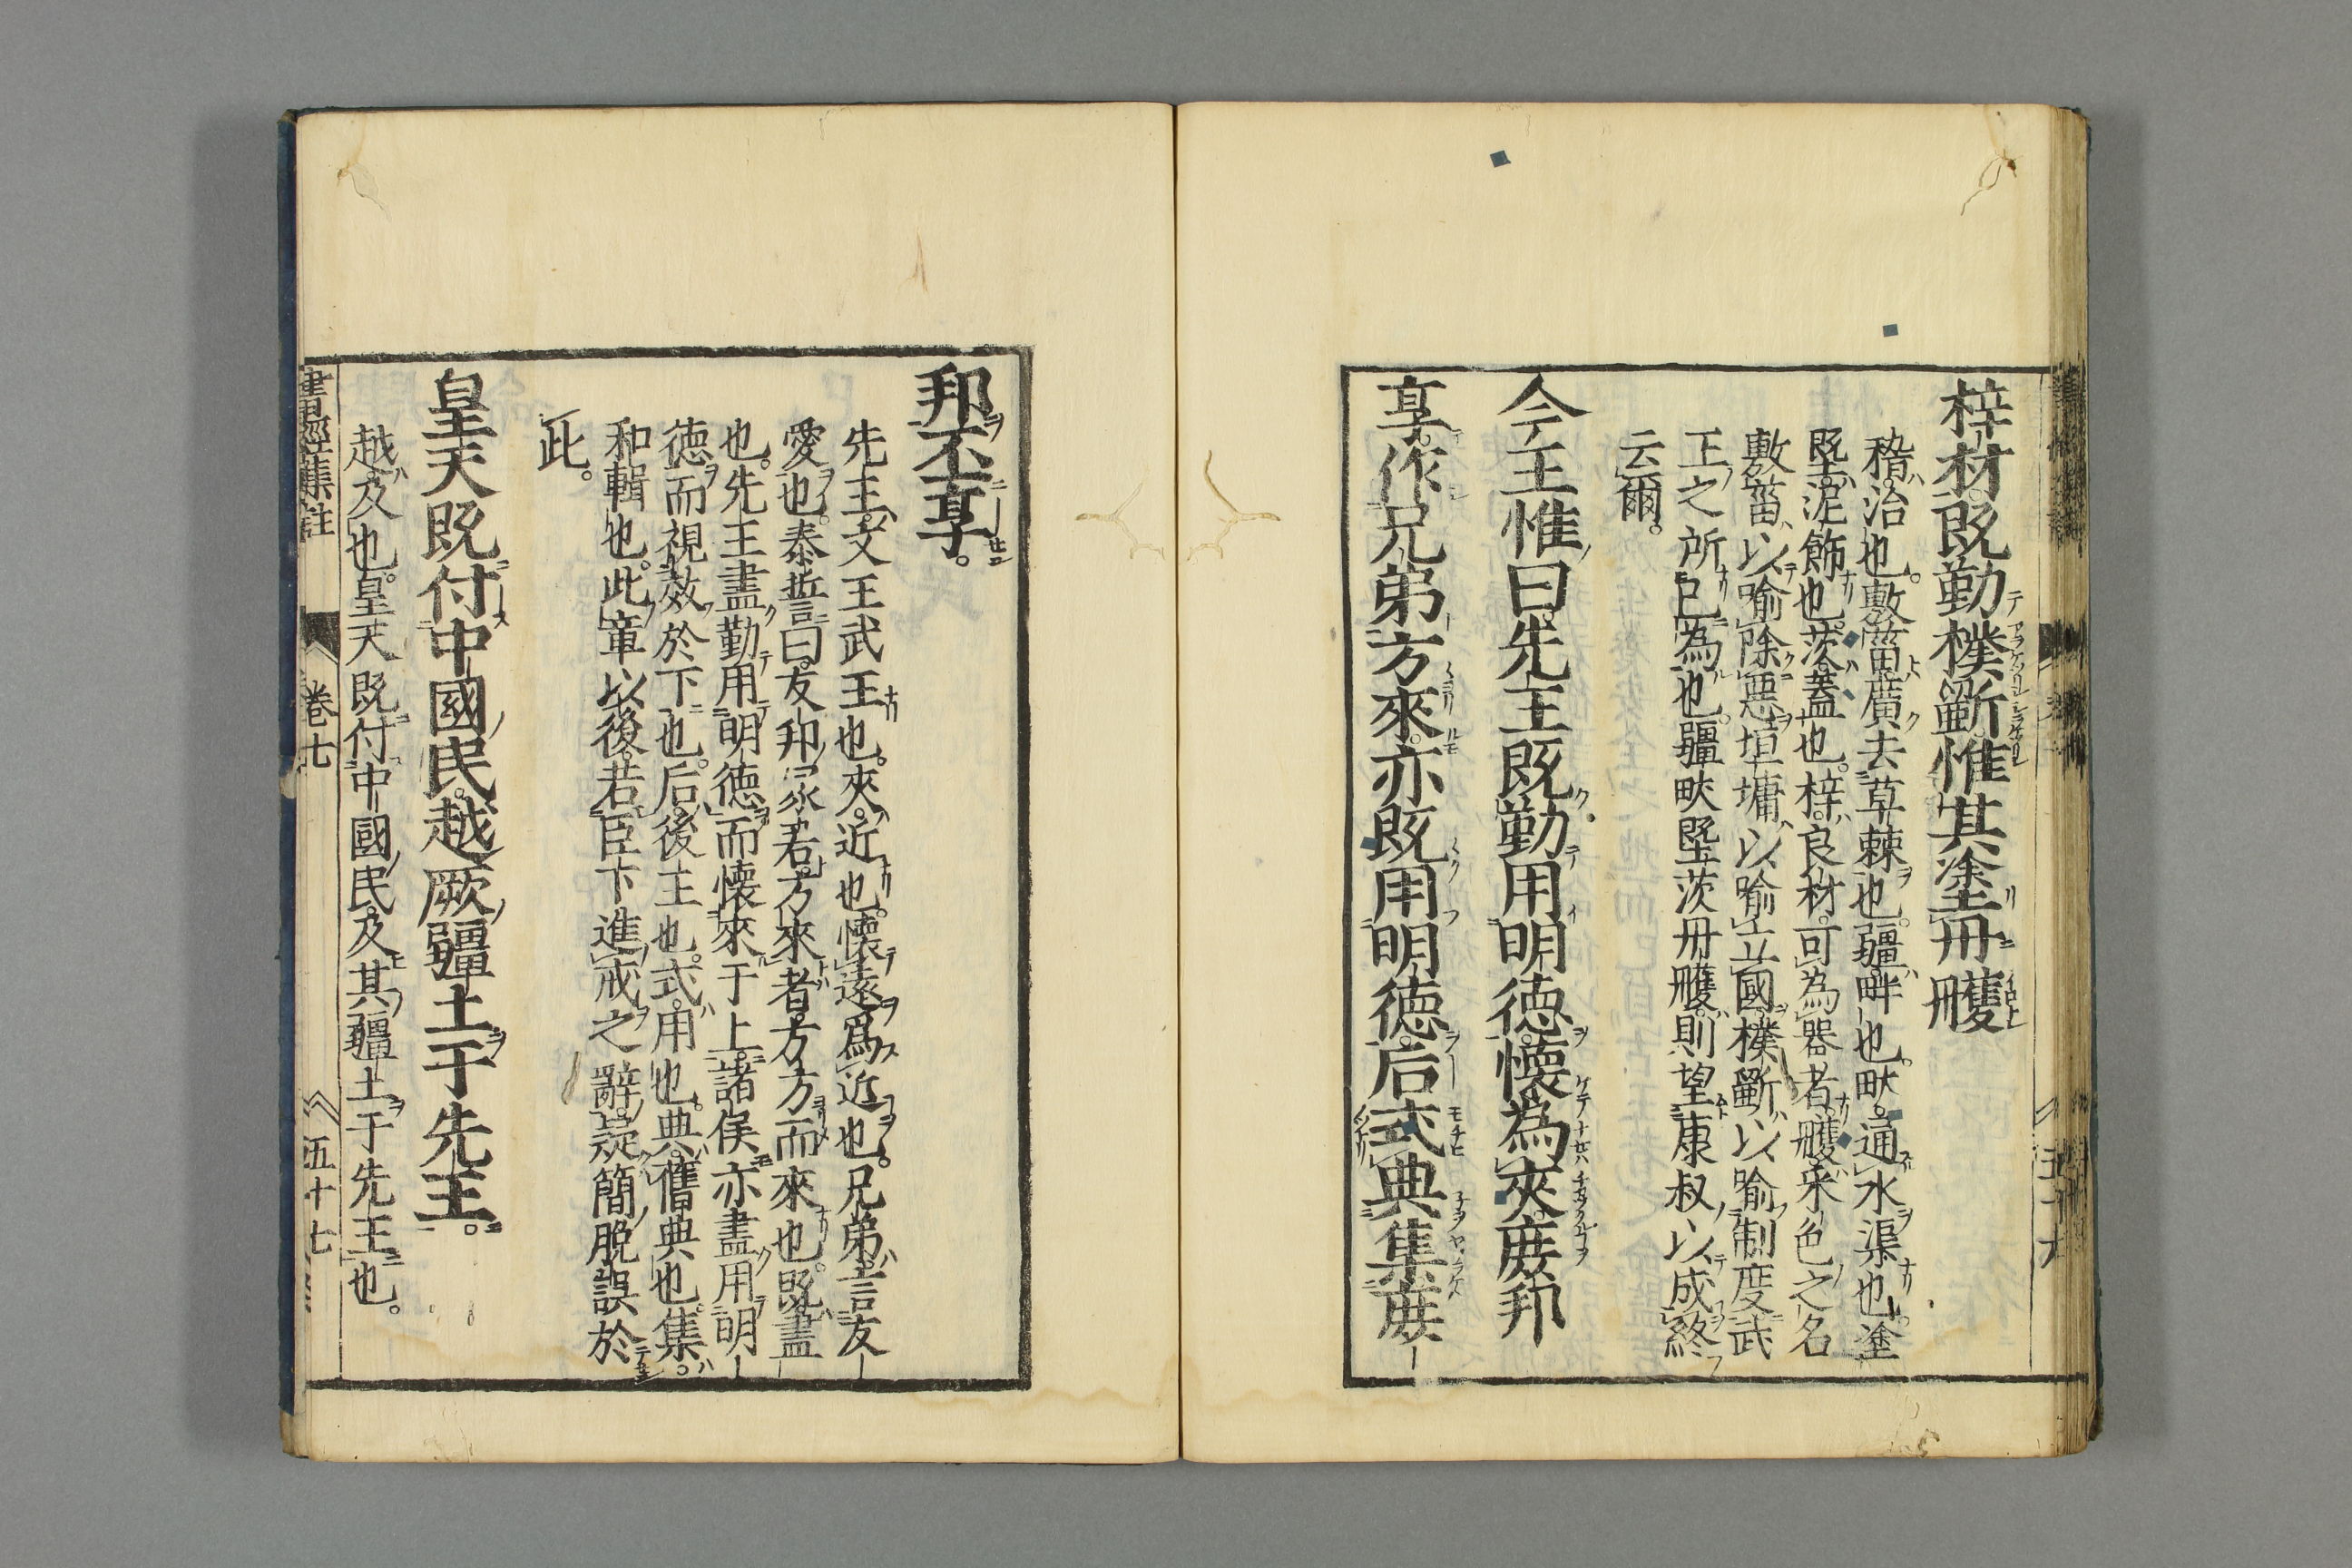 梓材。既勤樸斲。惟其塗丹雘
稽。治也。敷菑。廣去草棘也。疆。畔也。畎。通水渠也。塗
墍。泥飾也。茨。蓋也。梓。良材。可為器者。雘。采色之名
敷菑。以喻除惡。垣墉。以喻立國。樸斲。以喻制度。武
王之所已為也。疆畎墍茨丹雘。則望康叔以成終
云爾。
今王惟曰。先王既勤用明德。懷為夾。庶邦
享。作兄弟方來。亦既用明德。后式典集。庶
邦丕享。
先王。文王武王也。夾。近也。懷遠爲近也。兄弟。言友
愛也。泰誓曰。友邦冢君。方來者。方方而來也。既盡
也。先王盡勤用明德。而懷來于上。諸侯亦盡用明
德。而視效於下也。后。後王也。式。用也。典。舊典也。集。
和輯也。此章以後。若臣下進戒之辭。疑簡脫誤於
此。
皇天既付中國民。越厥疆土于先王。
越。及也。皇天既付中國民。及其疆土于先王也。
書經集註 卷七 五十七